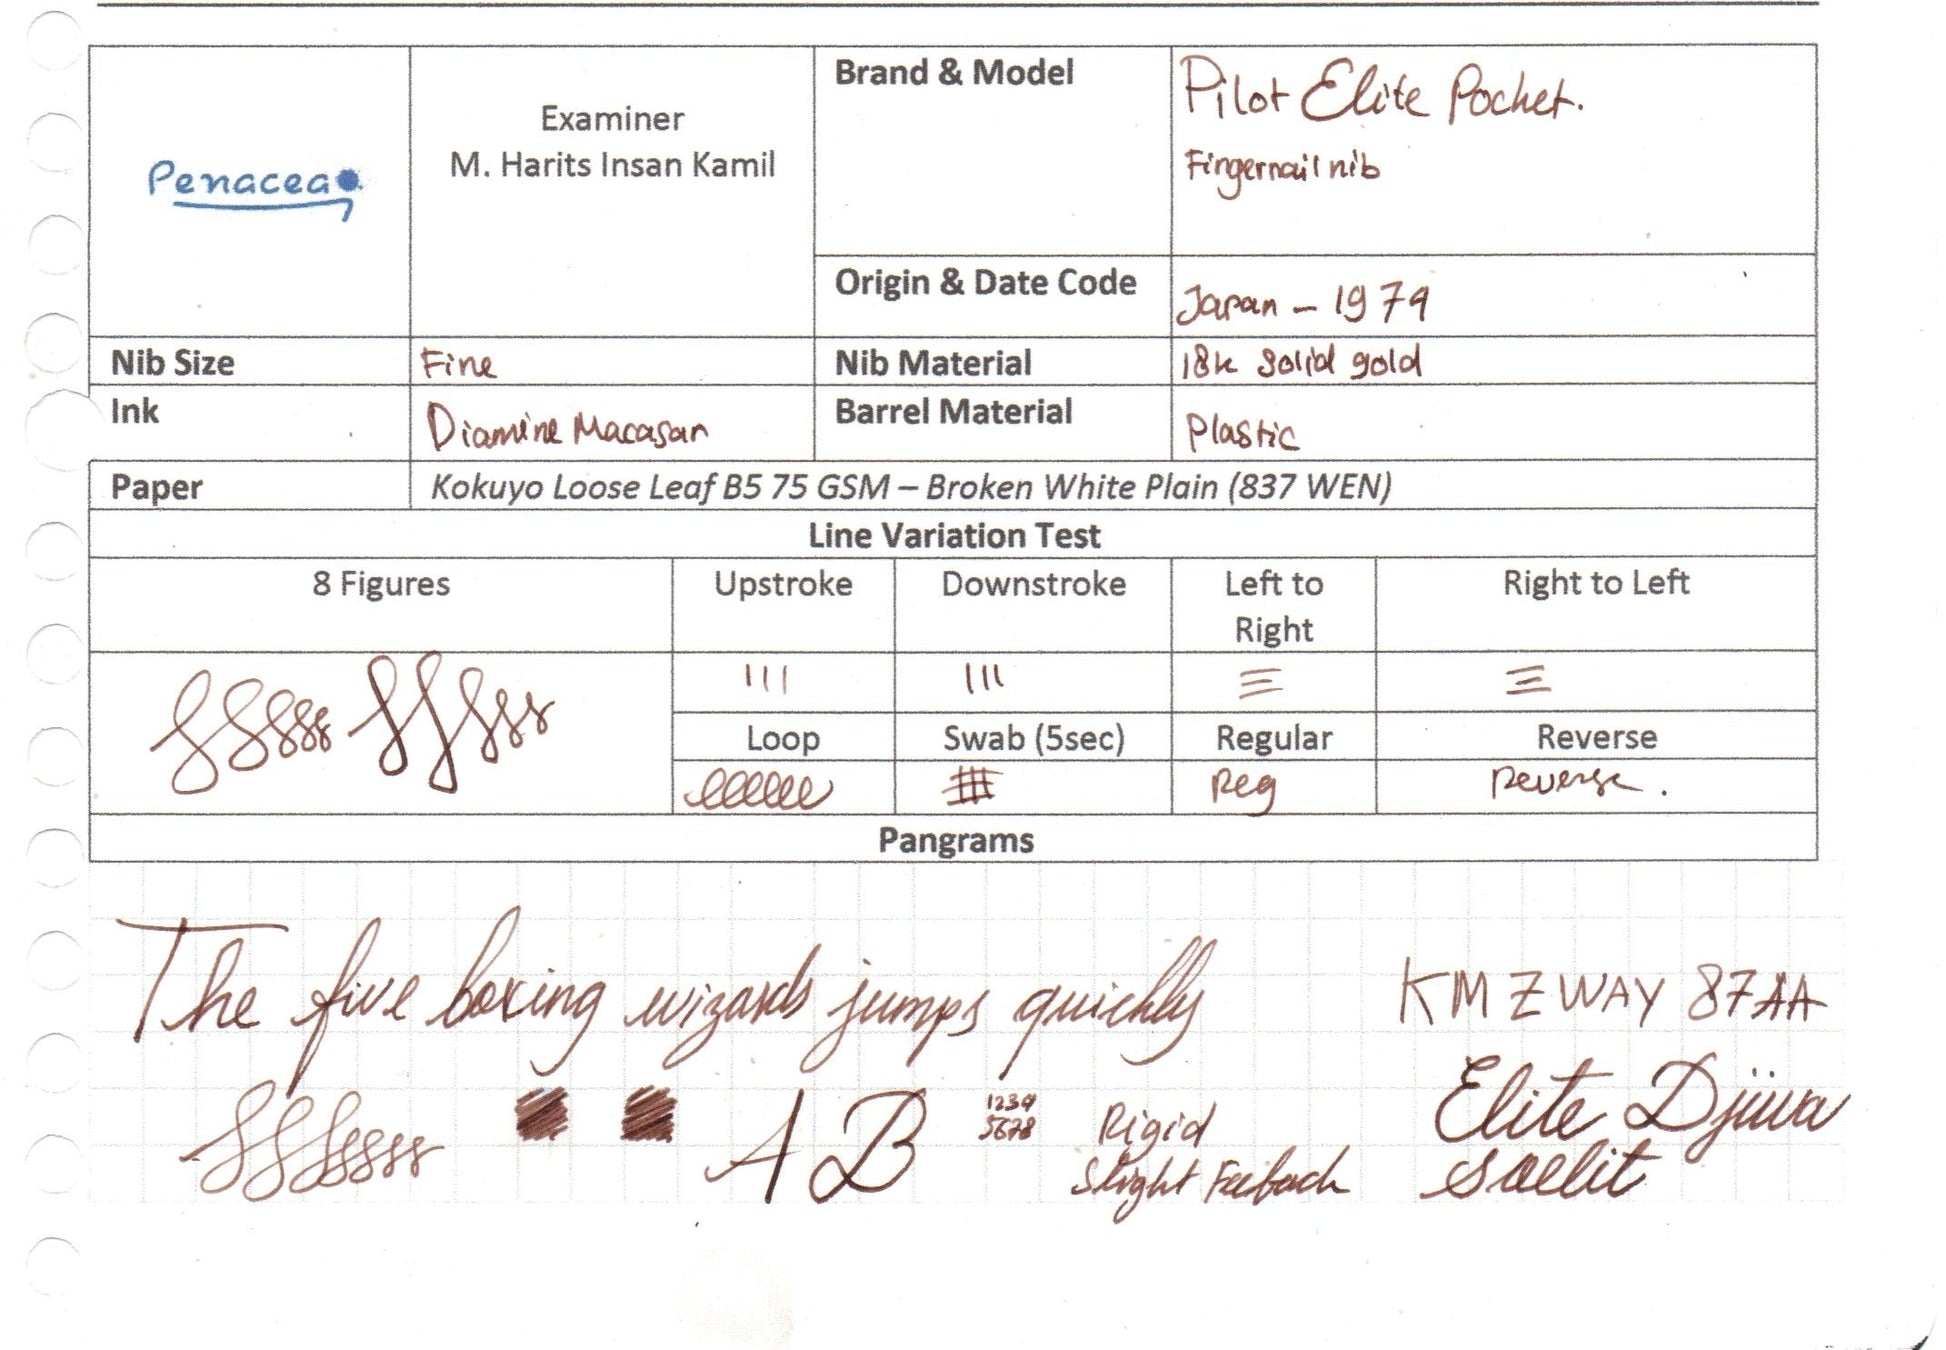 Penacea
Examiner
M. Harits Insan Kamil
Brand & Model
Pilot Elite Pocket.
Fingernail nib
Origin & Date Code
Japan - 1979
Nib Size
Fine
Nib Material
18k solid gold
Ink
Diamine Macasan
Barrel Material
Plastic
Paper
Kokuyo Loose Leaf B5 75 GSM – Broken White Plain (837 WEN)
Line Variation Test
8 Figures
Upstroke
Downstroke
Left to
Right
Right to Left
Loop
Swab (5sec)
Regular
Reverse
Reg
Reverse.
Pangrams
The five boxing wizards jumps quickly
KMZWAY 87AA
A B
1234
5678
Rigid
Slight Feeback
Elite Djiwa